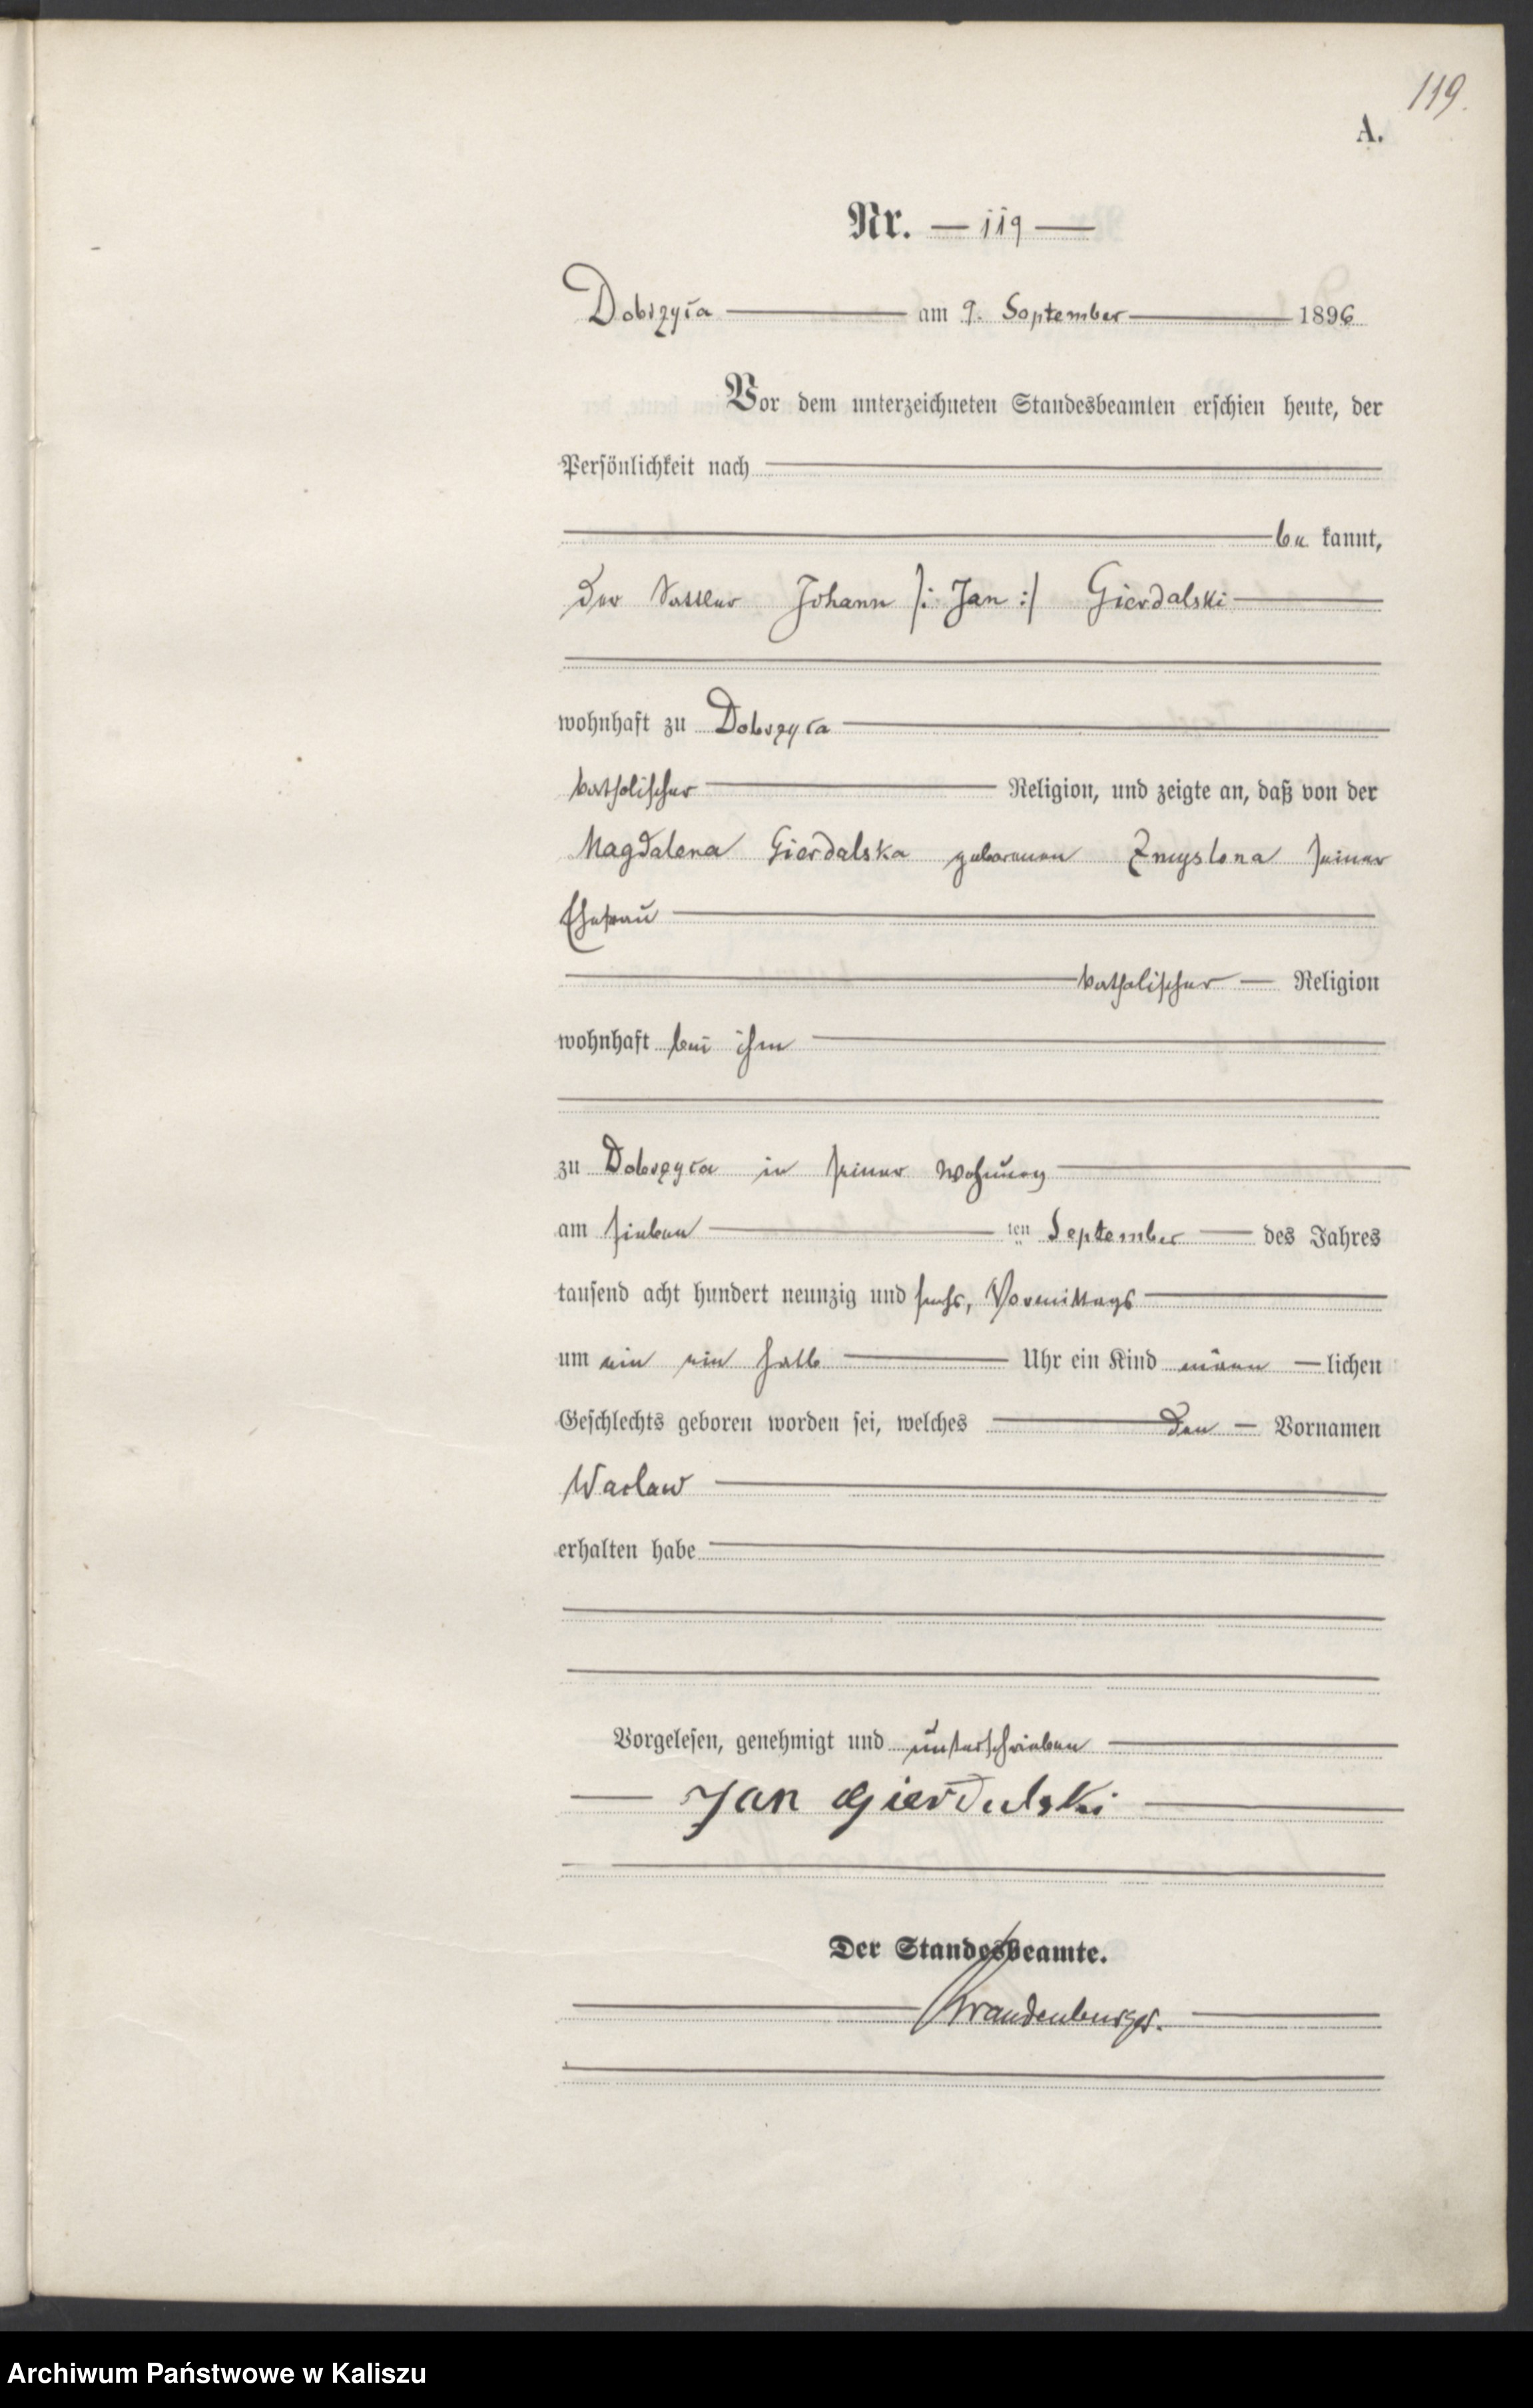 119.
A.
Nr. 119
Dobrzyca am 9. September 1896
Vor dem unterzeichneten Standesbeamten erschien heute, der
Persönlichkeit nach
be kannt,
der Sattler Johann /: Jan :/ Gierdalski
wohnhaft zu Dobrzyca
katholischer Religion, und zeigte an, daß von der
Magdalena Gierdalska geborenen Zmyslona seiner
Ehefrau
katholischer Religion
wohnhaft bei ihm
zu Dobrzyca in seiner Wohnung
am sieben ten September des Jahres
tausend acht hundert neunzig und sechs, Vormittags
um ein ein halb Uhr ein Kind männ lichen
Geschlechts geboren worden sei, welches den Vornamen
Waclaw
erhalten habe
Vorgelesen, genehmigt und unterschrieben
Jan Gierdalski
Der Standesbeamte.
Brandenburger.
Archiwum Państwowe w Kaliszu